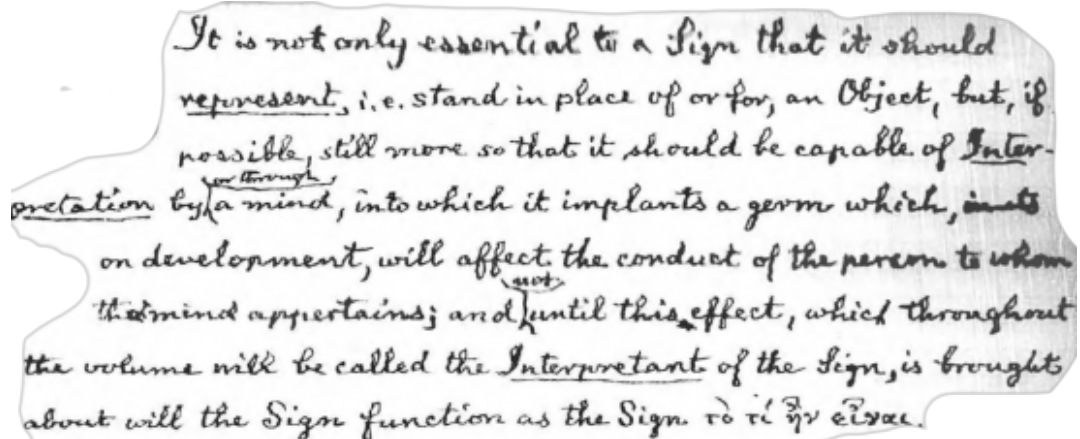 It is not only essential to a Sign that it should
represent, i.e. stand in place of or for, an Object, but, if
possible, still more so that it should be capable of Inter-
or through
pretation by a mind, into which it implants a germ which, in its
on development, will affect the conduct of the person to whom
not
the mind appertains; and until this effect, which throughout
the volume will be called the Interpretant of the Sign, is brought
about will the Sign function as the Sign τὸ τί ἦν εἶναι.